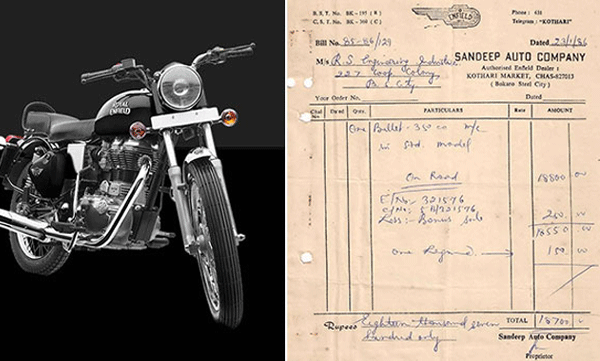 ROYAL
ENFIELD
B. S. T. No. BK-195 (R)
C. S. T. No. BK-360 (C)
ENFIELD
Phone : 631
Telegram : "KOTHARI"
Bill No. 85-86/129
Dated 23/1/86
SANDEEP AUTO COMPANY
Authorised Enfield Dealer :
KOTHARI MARKET, CHAS-827013
( Bokaro Steel City )
M/s R. S. Engineering Industries
227 Coop Colony
B. S. City
Your Order No.
Dated
Chal No. Dated Qnty. PARTICULARS Rate AMOUNT
One Bullet - 350 cc m/c
in Std. model
On Road 18800 00
E/No:- 321576
C/No:- 321576
Less:- Bonus 250 00
18550 00
One Legguard 150 00
TOTAL 18700
Rupees Eighteen thousand seven
hundred only
Sandeep Auto Company
Proprietor